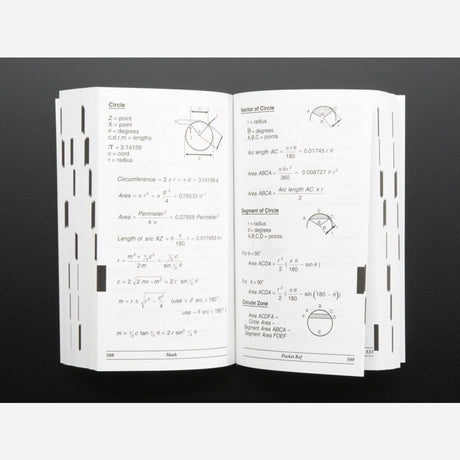 Circle
Z = point
X = point
θ = degrees
c,d,r,m = lengths
π = 3.14159
c = cord
r = radius
Circumference = 2 π r = π d = 3.14159 d
Area = π r² = π d²/4 = 0.78539 d²
Area = Perimeter²/4 π = 0.07958 Perimeter²
Length of arc XZ = θ π/180 r = 0.017453 θ r
r = m² + ¼ c²/2 m = ½ c/sin ½ θ
c = 2 √2 mr - m² = 2 r sin ½ θ
m = r ± √r² - c²/4 (use + if arc ≥ 180°
use - if arc < 180°)
m = ½ c tan ¼ θ = 2 r sin² ¼ θ
508 Math
Sector of Circle
r = radius
θ = degrees
A,B,C = points
Arc length AC = π r θ/180 = 0.01745 r θ
Area ABCA = π θ r²/360 = 0.008727 θ r²
Area ABCA = Arc length AC x r/2
Segment of Circle
r = radius
θ = degrees
A,B,C,D = points
< 90°
Area ACDA = r²/2 ( π θ/180 - sin θ )
> 90°
Area ACDA = r²/2 ( π θ/180 - sin (180 - θ) )
Circular Zone
Area ACDFA =
Circle Area -
Segment Area ABCA -
Segment Area FDEF
Pocket Ref 509
533